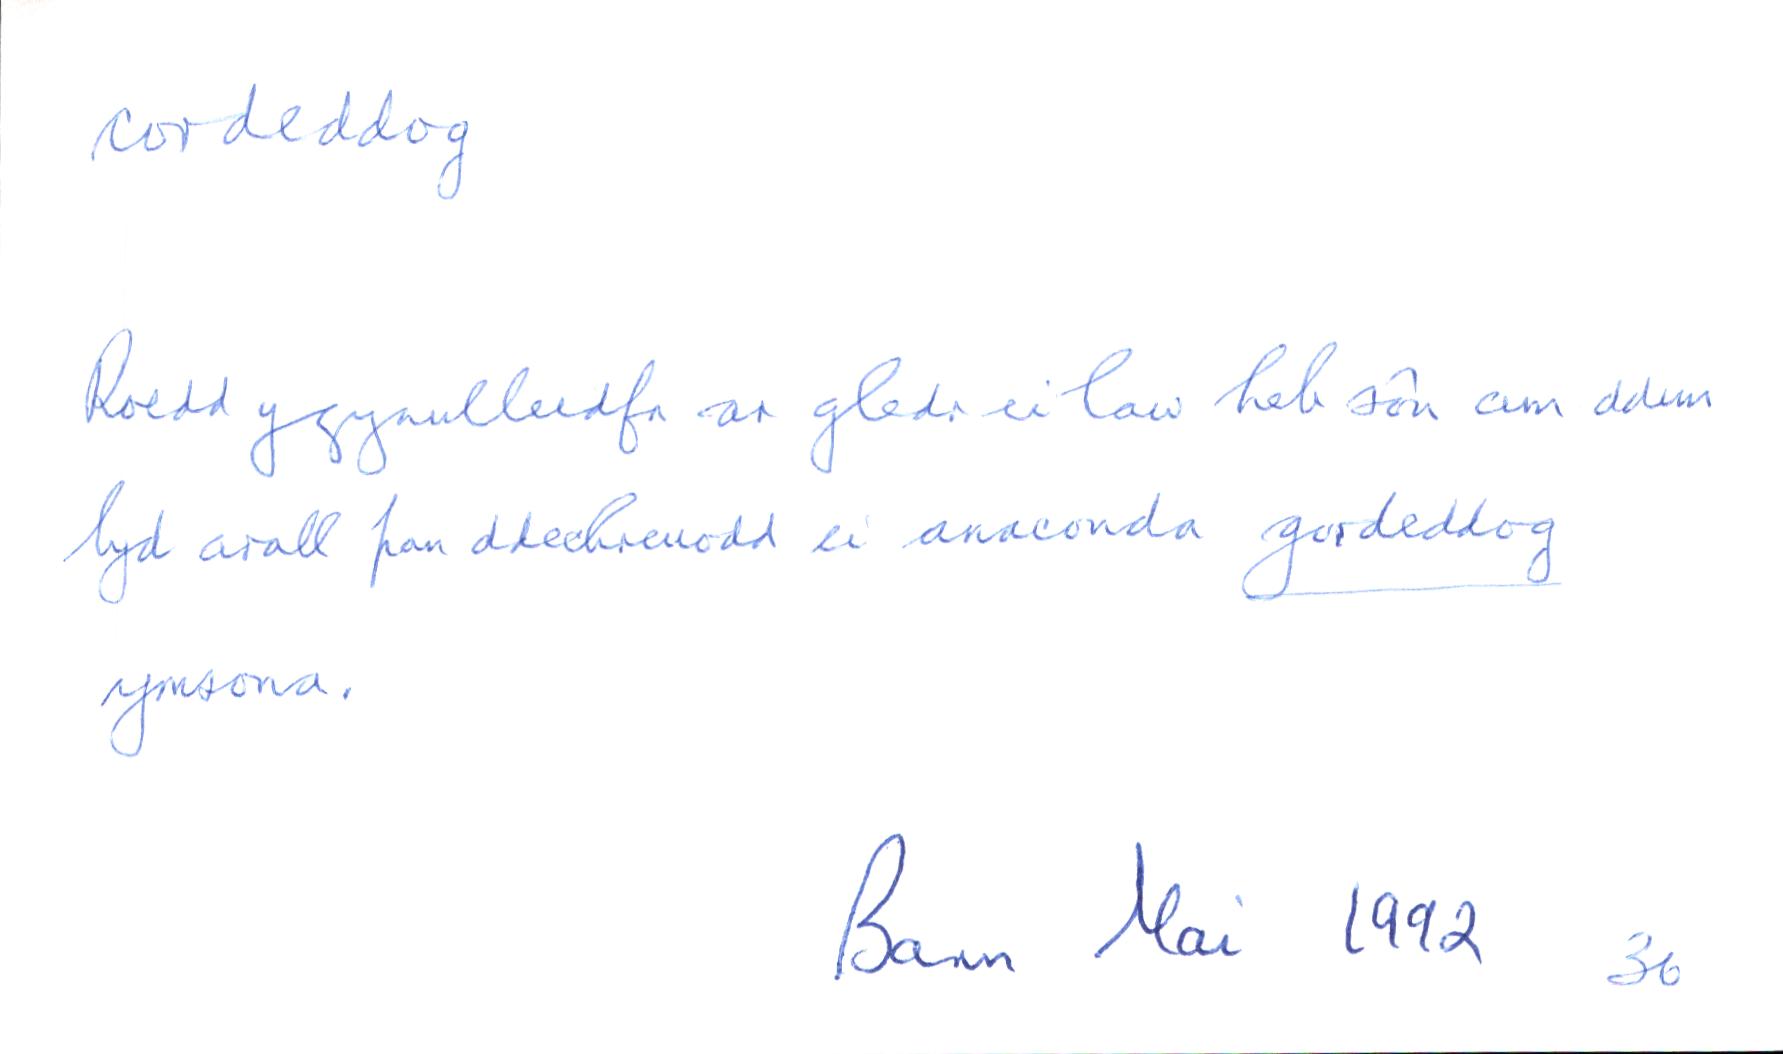 cordeddog
Roedd y gynulleidfa ar gledr ei law heb sôn am ddim
byd arall pan ddechreuodd ei anaconda gordeddog
ymsona.
Barn Mai 1992 36